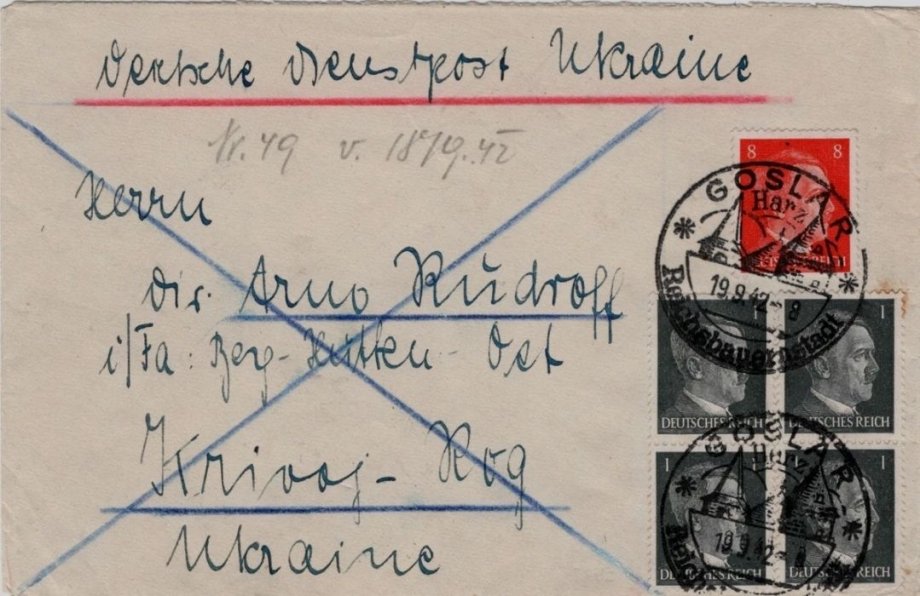 Deutsche Dienstpost Ukraine
Nr. 49 v. 18/9.42
Herrn
Dir. Arno Rudroff
i/Fa: Berg-Hütten-Ost
Krivoj-Rog
Ukraine
8 8
DEUTSCHES REICH
GOSLAR
Harz
19.9.42-8
Reichsbauernstadt
1 1
DEUTSCHES REICH DEUTSCHES REICH
GOSLAR
Harz
1
19.9.42-8
DEUTSCHES REICH DEUTSCHES REICH